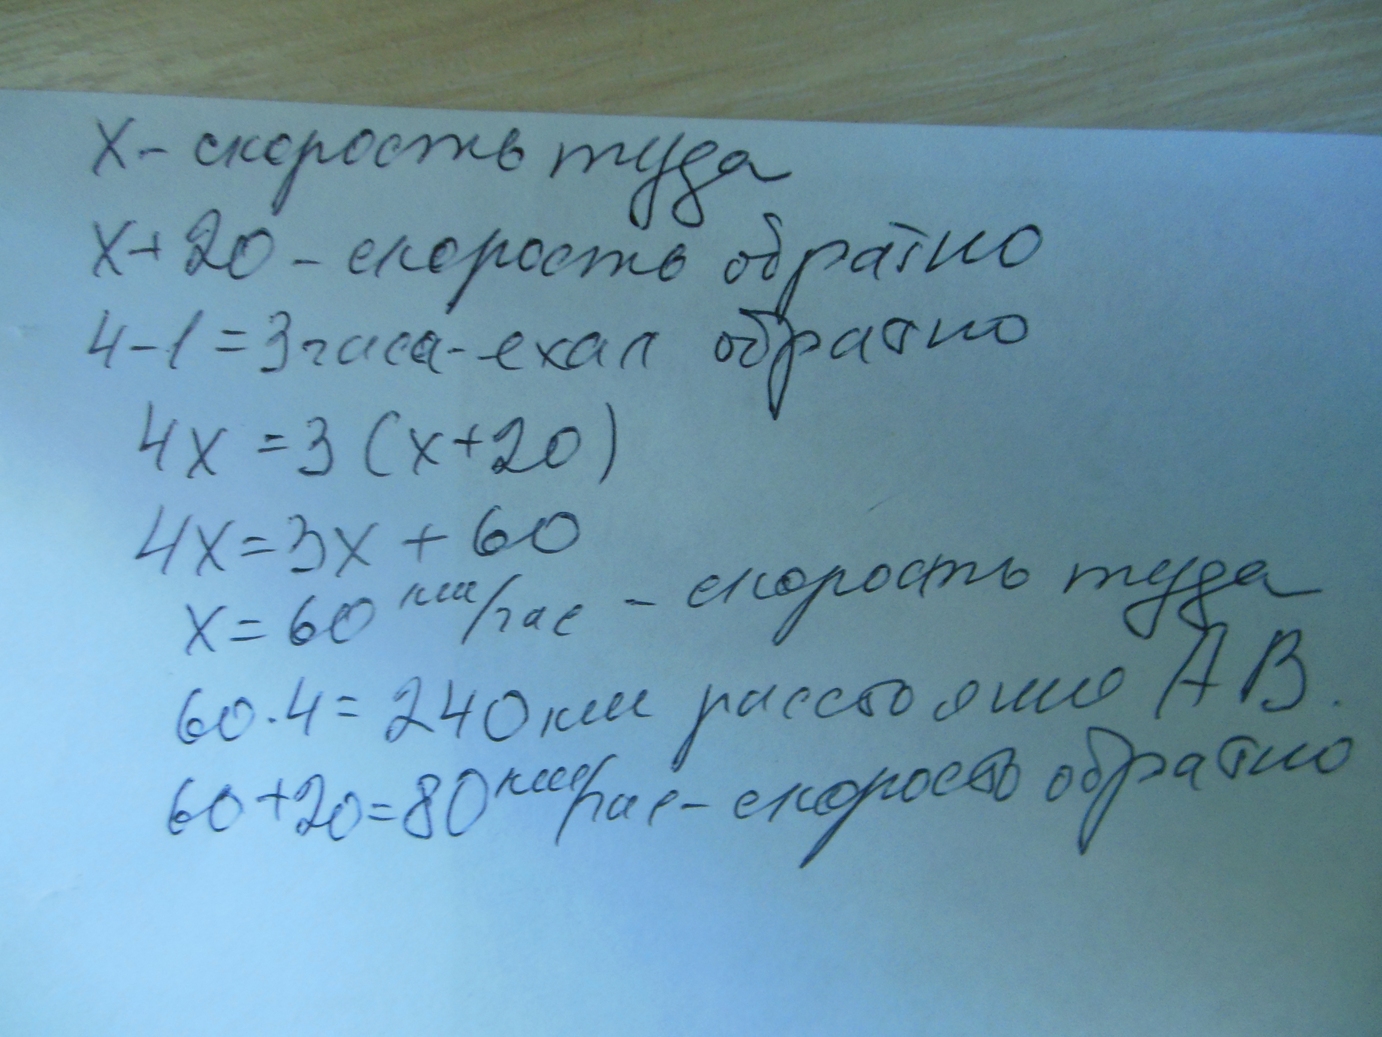 x - скорость туда
x + 20 - скорость обратно
4 - 1 = 3 часа - ехал обратно
4x = 3 (x + 20)
4x = 3x + 60
x = 60 км/час - скорость туда
60 · 4 = 240 км расстояние АВ.
60 + 20 = 80 км/час - скорость обратно